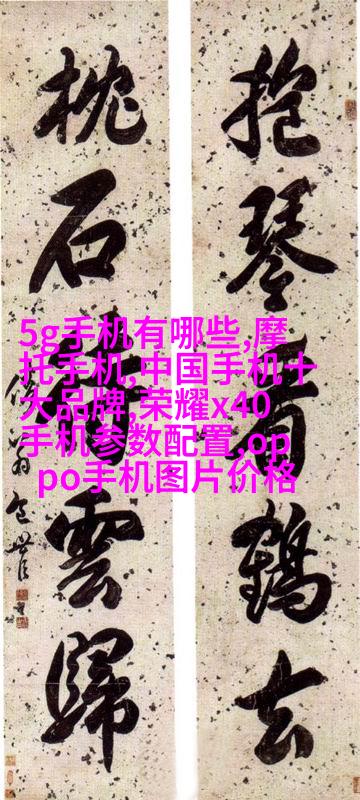 抱琴看鶴去
枕石待雲歸
翁包世臣
5g手机有哪些,摩
托手机,中国手机十
大品牌,荣耀x40
手机参数配置,op
po手机图片价格